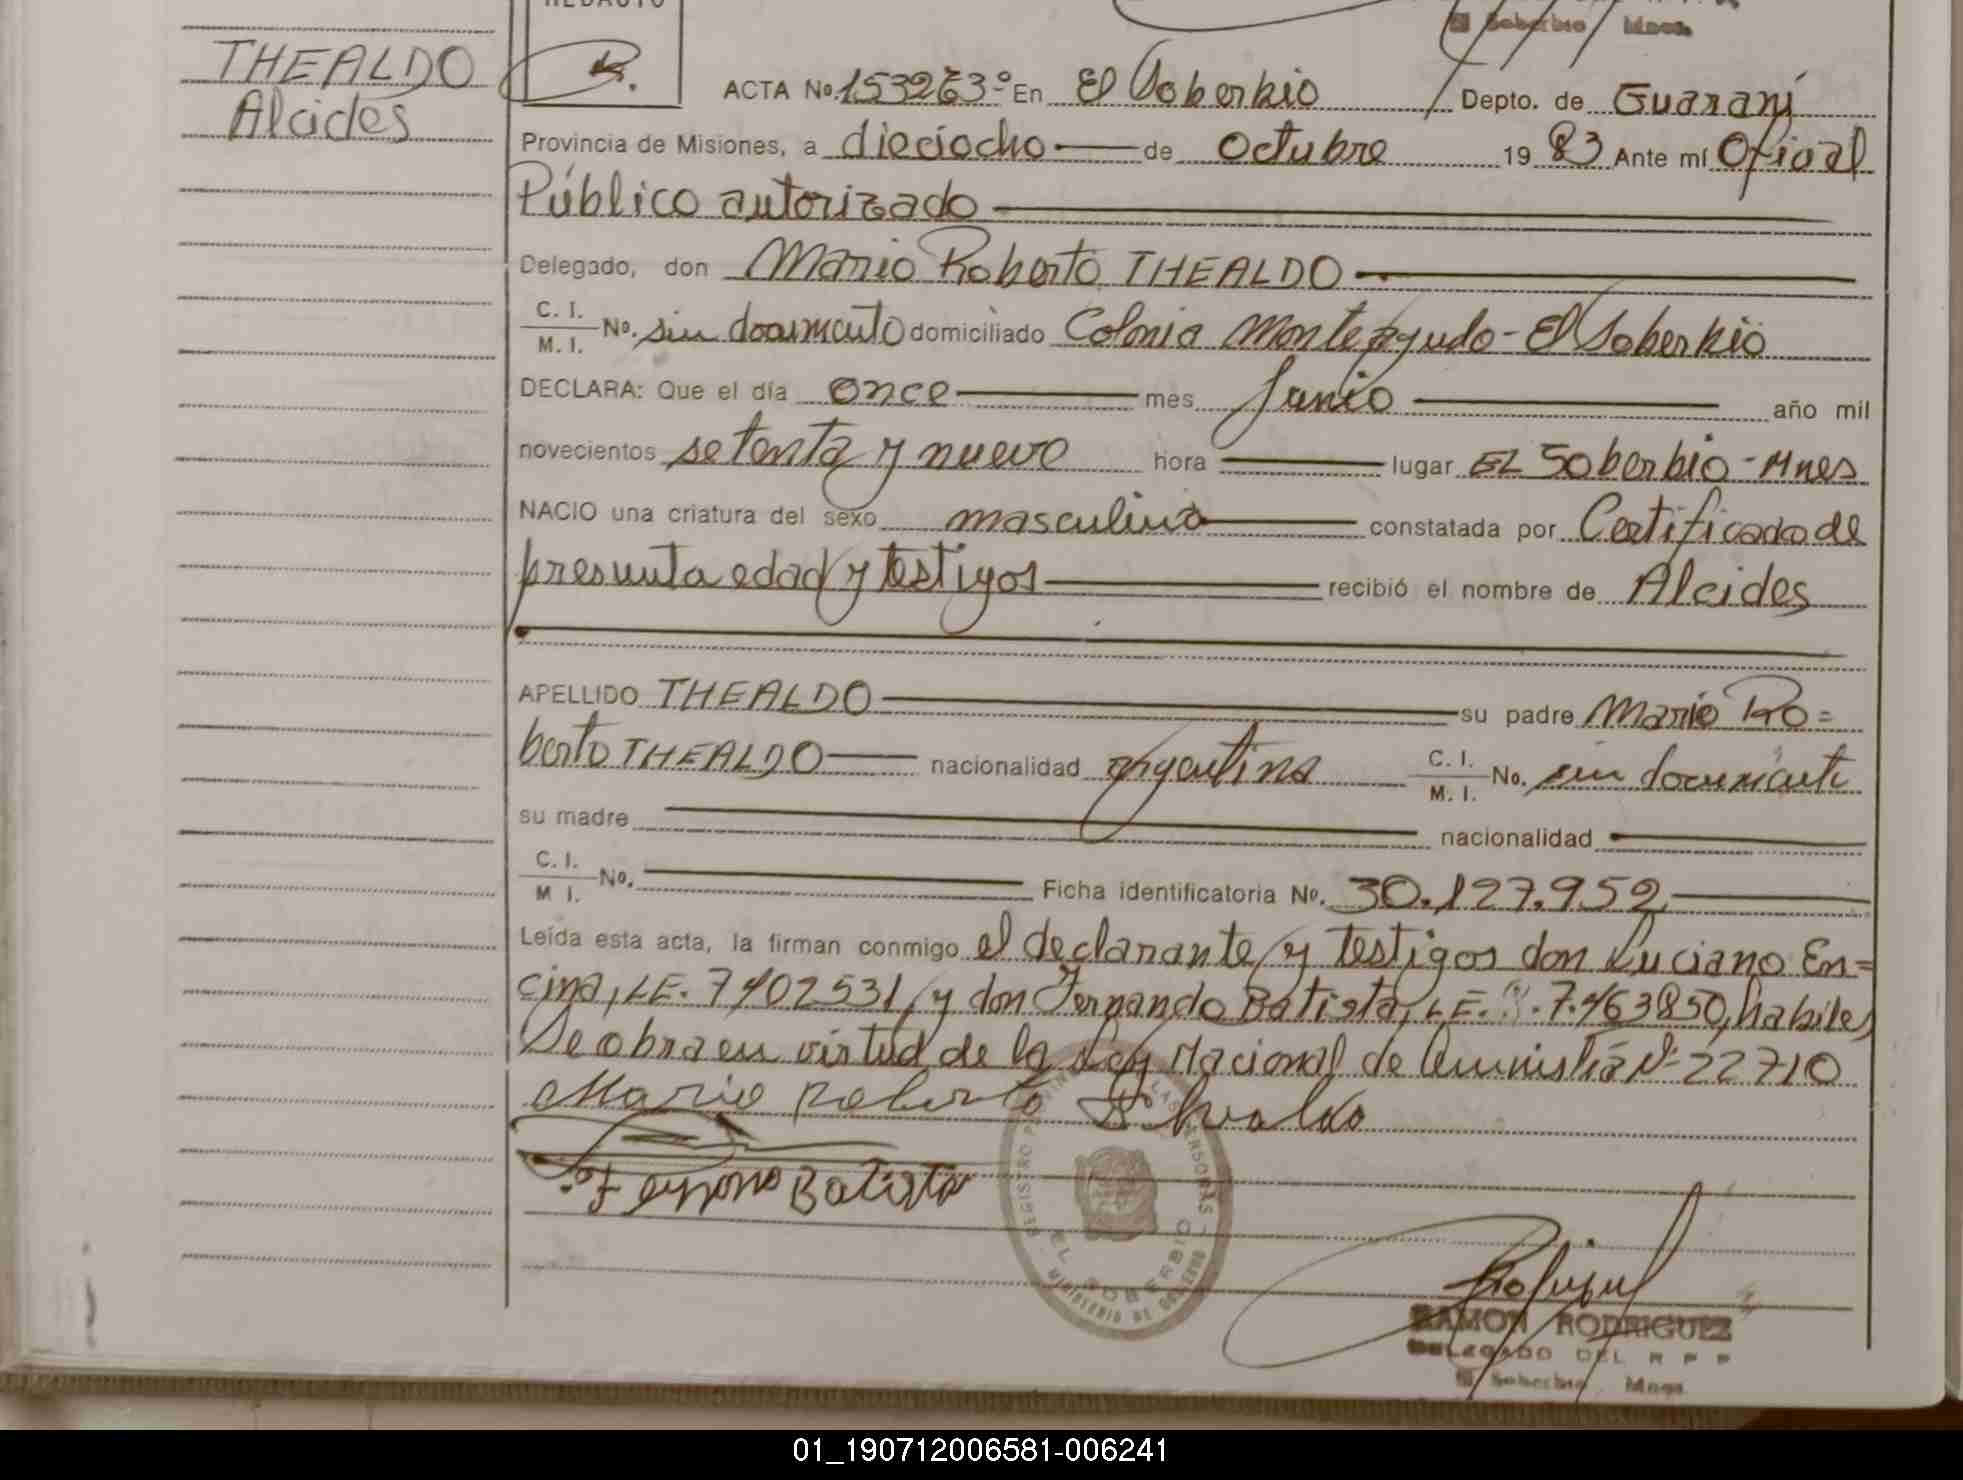 REDACTO
El Soberbio Mnes.
THEALDO
Alcides
ACTA No. 153263º En El Soberbio Depto. de Guaraní
Provincia de Misiones, a dieciocho de Octubre 19 83 Ante mí Oficial
Público autorizado
Delegado, don Mario Roberto THEALDO
C. I.
M. I. No. sin documento domiciliado Colonia Monteagudo - El Soberbio
DECLARA: Que el día once mes Junio año mil
novecientos setenta y nueve hora lugar EL Soberbio - Mnes
NACIO una criatura del sexo masculino constatada por Certificado de
presunta edad y testigos recibió el nombre de Alcides
APELLIDO THEALDO su padre Mario Ro=
berto THEALDO nacionalidad argentina C. I. M. I. No. sin documento
su madre nacionalidad
C. I. M I. No. Ficha identificatoria No. 30.127.952
Leída esta acta, la firman conmigo el declarante y testigos don Luciano En=
cina, LE. 7402531, y don Fernando Batista, LE. 7.463850, habiles
Se obra en virtud de la Ley Nacional de Amnistía Nº 22710
Mario Roberto
Batista
EL SOBERBIO
MINISTERIO DE GOBIERNO
RAMON RODRIGUEZ
DELEGADO DEL R P P
El Soberbio Mnes
01_190712006581-006241